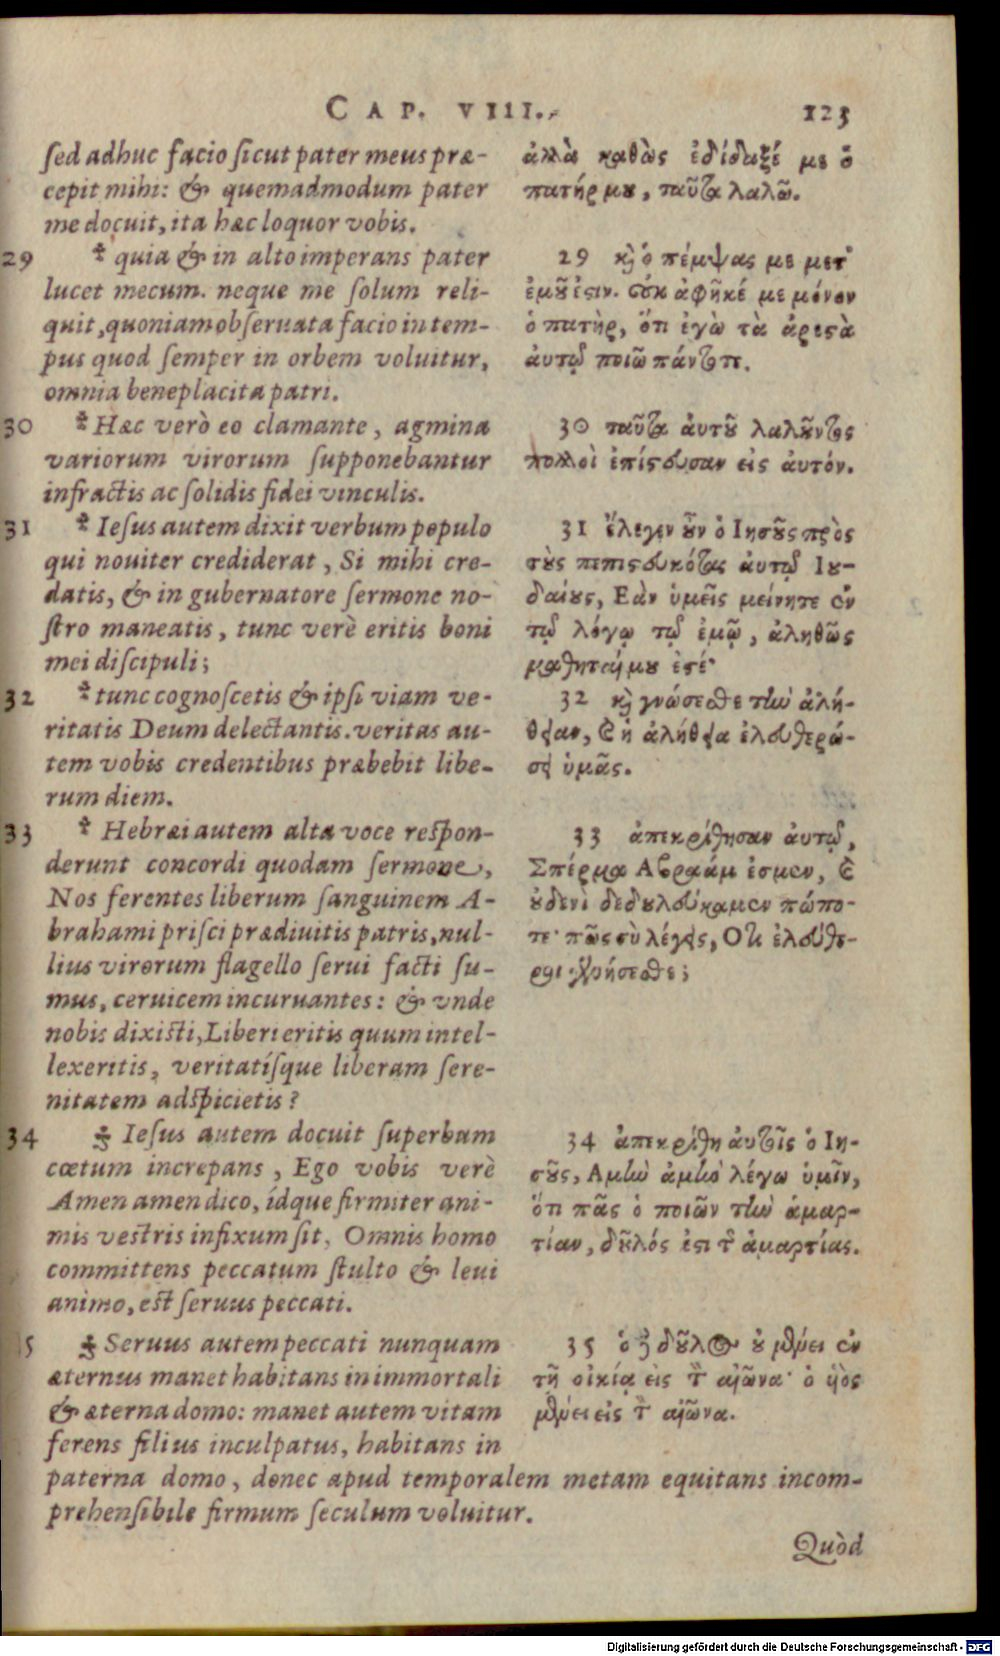 CAP. VIII.
123
sed adhuc facio sicut pater meus præ-
cepit mihi: & quemadmodum pater
me docuit, ita hæc loquor vobis.
29 * quia & in alto imperans pater
lucet mecum. neque me solum reli-
quit, quoniam observata facio in tem-
pus quod semper in orbem voluitur,
omnia beneplacita patri.
30 * Hæc verò eo clamante, agmina
variorum virorum supponebantur
infractis ac solidis fidei vinculis.
31 * Iesus autem dixit verbum populo
qui noviter crediderat, Si mihi cre-
datis, & in gubernatore sermone no-
stro maneatis, tunc verè eritis boni
mei discipuli;
32 * tunc cognoscetis & ipsi viam ve-
ritatis Deum delectantis. veritas au-
tem vobis credentibus præbebit libe-
rum diem.
33 * Hebræi autem alta voce respon-
derunt concordi quodam sermone,
Nos ferentes liberum sanguinem A-
brahami prisci prædiuitis patris, nul-
lius virorum flagello serui facti su-
mus, ceruicem incuruantes: & vnde
nobis dixisti, Liberi eritis quum intel-
lexeritis, veritatísque liberam sere-
nitatem adspicietis?
34 * Iesus autem docuit superbum
cœtum increpans, Ego vobis verè
Amen amen dico, ídque firmiter ani-
mis vestris infixum sit, Omnis homo
committens peccatum stulto & leui
animo, est seruus peccati.
5 * Seruus autem peccati nunquam
æternus manet habitans in immortali
& æterna domo: manet autem vitam
ferens filius inculpatus, habitans in
paterna domo, donec apud temporalem metam equitans incom-
prehensibile firmum seculum voluitur.
ἀλλὰ καθὼς ἐδίδαξέ με ὁ
πατήρ μου, ταῦτα λαλῶ.
29 καὶ ὁ πέμψας με μετ'
ἐμοῦ ἐστιν. οὐκ ἀφῆκέ με μόνον
ὁ πατὴρ, ὅτι ἐγὼ τὰ ἀρεστὰ
αὐτῷ ποιῶ πάντοτε.
30 ταῦτα αὐτοῦ λαλοῦντος
πολλοὶ ἐπίστευσαν εἰς αὐτόν.
31 ἔλεγεν οὖν ὁ Ιησοῦς πρὸς
τοὺς πεπιστευκότας αὐτῷ Ιου-
δαίους, Εὰν ὑμεῖς μείνητε ἐν
τῷ λόγῳ τῷ ἐμῷ, ἀληθῶς
μαθηταί μου ἐστέ·
32 καὶ γνώσεσθε τὴν ἀλή-
θειαν, καὶ ἡ ἀλήθεια ἐλευθερώ-
σει ὑμᾶς.
33 ἀπεκρίθησαν αὐτῷ,
Σπέρμα Αβραάμ ἐσμεν, καὶ
οὐδενὶ δεδουλεύκαμεν πώπο-
τε· πῶς σὺ λέγεις, Οτι ἐλεύθε-
ροι γενήσεσθε;
34 ἀπεκρίθη αὐτοῖς ὁ Ιη-
σοῦς, Αμὴν ἀμὴν λέγω ὑμῖν,
ὅτι πᾶς ὁ ποιῶν τὴν ἁμαρ-
τίαν, δοῦλός ἐστι τῆς ἁμαρτίας.
35 ὁ δὲ δοῦλος οὐ μένει ἐν
τῇ οἰκίᾳ εἰς τὸν αἰῶνα· ὁ υἱὸς
μένει εἰς τὸν αἰῶνα.
Quòd
Digitalisierung gefördert durch die Deutsche Forschungsgemeinschaft - DFG